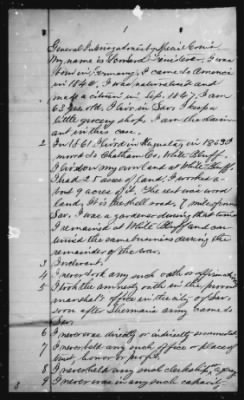 1
General Interrogatories by special Com'r
My name is Bernard Benedict. I was
born in Germany. I came to America
in 1840. I was naturalized and
made a citizen in Sep. 1847. I am
63 years old. I live in Sav. I keep a
little grocery shop. I am the claim
ant in this case.
2 In 1861 I lived in Augusta, in 1863 I
moved to Chatham Co., White Bluff.
I had 35 acres of land, I worked a
bout 9 acres of it. The rest was wood
land. It is the shell road, 7 miles from
Sav. I was a gardener during this time
I remained at White Bluff and con
tinued the same business during the
remainder of the war.
3 I
4 I never took any such oath or affirmation
5 I took the amnesty oath in the provost
marshal's office in the city of Sav.
soon after Sherman's army came to
Sav.
6 I never was directly or indirectly connected
7 I never held any such office or place of
trust, honor or profit.
8 I never held any such clerkship, agency
9 I never was in any such capacity